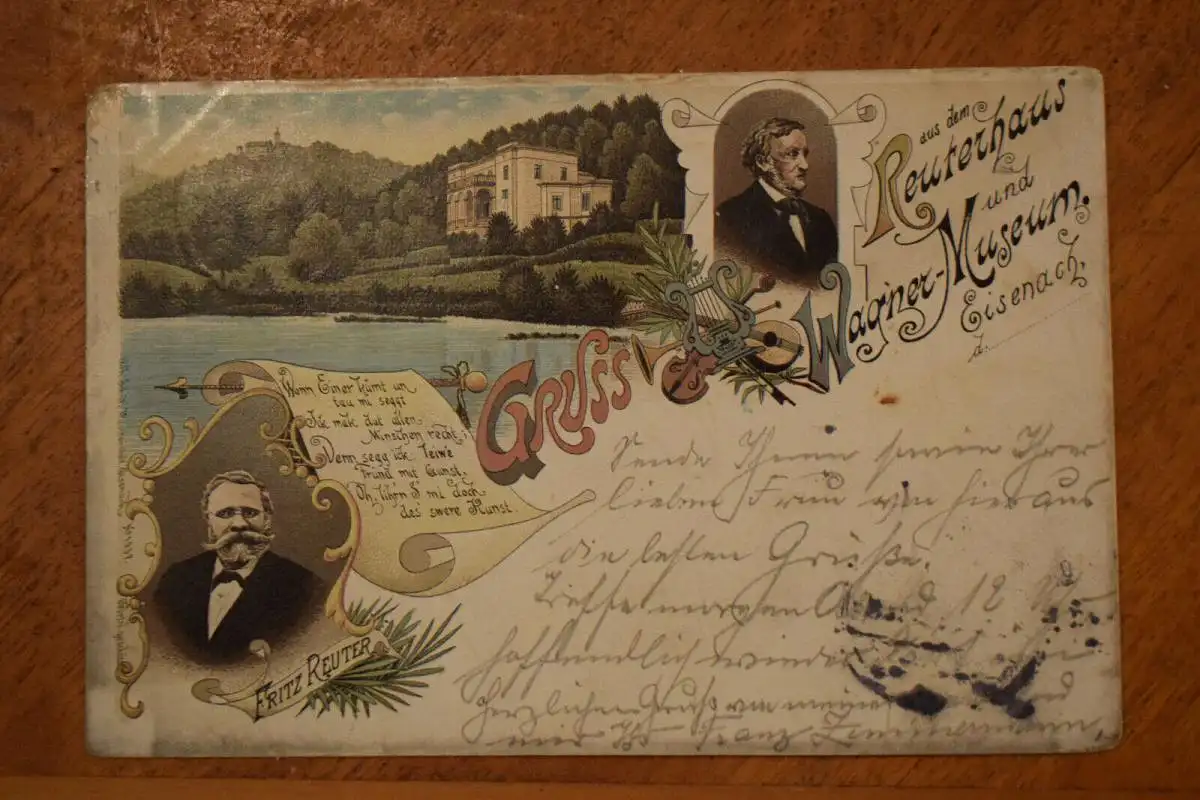 Gruss
aus dem
Reuterhaus
und
Wagner-Museum.
Eisenach,
d.
Wenn Einer kümt un
tau mi seggt
Ik mak dat allen
Minschen recht;
Denn segg ick leiwe
Fründ mit Gunst,
Oh, liehr'n S' mi doch
des swere Kunst.
FRITZ REUTER
Sende Ihnen sowie Ihrer
lieben Frau von hier aus
die besten Grüße.
Treffe morgen Abend 12 Uhr
hoffendlich wieder
Herzlichen Gruß von meiner
und Franz Zimmermann,